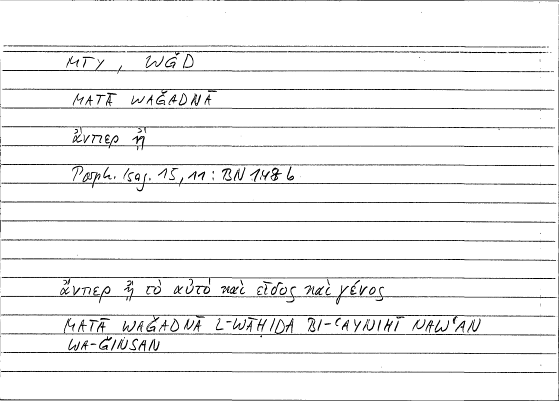 MTY, WǦD
MATĀ WAǦADNĀ
ἄνπερ ᾖ
Porph. Isag. 15, 11 : BN 148 b
ἄνπερ ᾖ τὸ αὐτὸ καὶ εἶδος καὶ γένος
MATĀ WAǦADNĀ L-WĀḤIDA BI-ʿAYNIHĪ NAWʿAN
WA-ǦINSAN